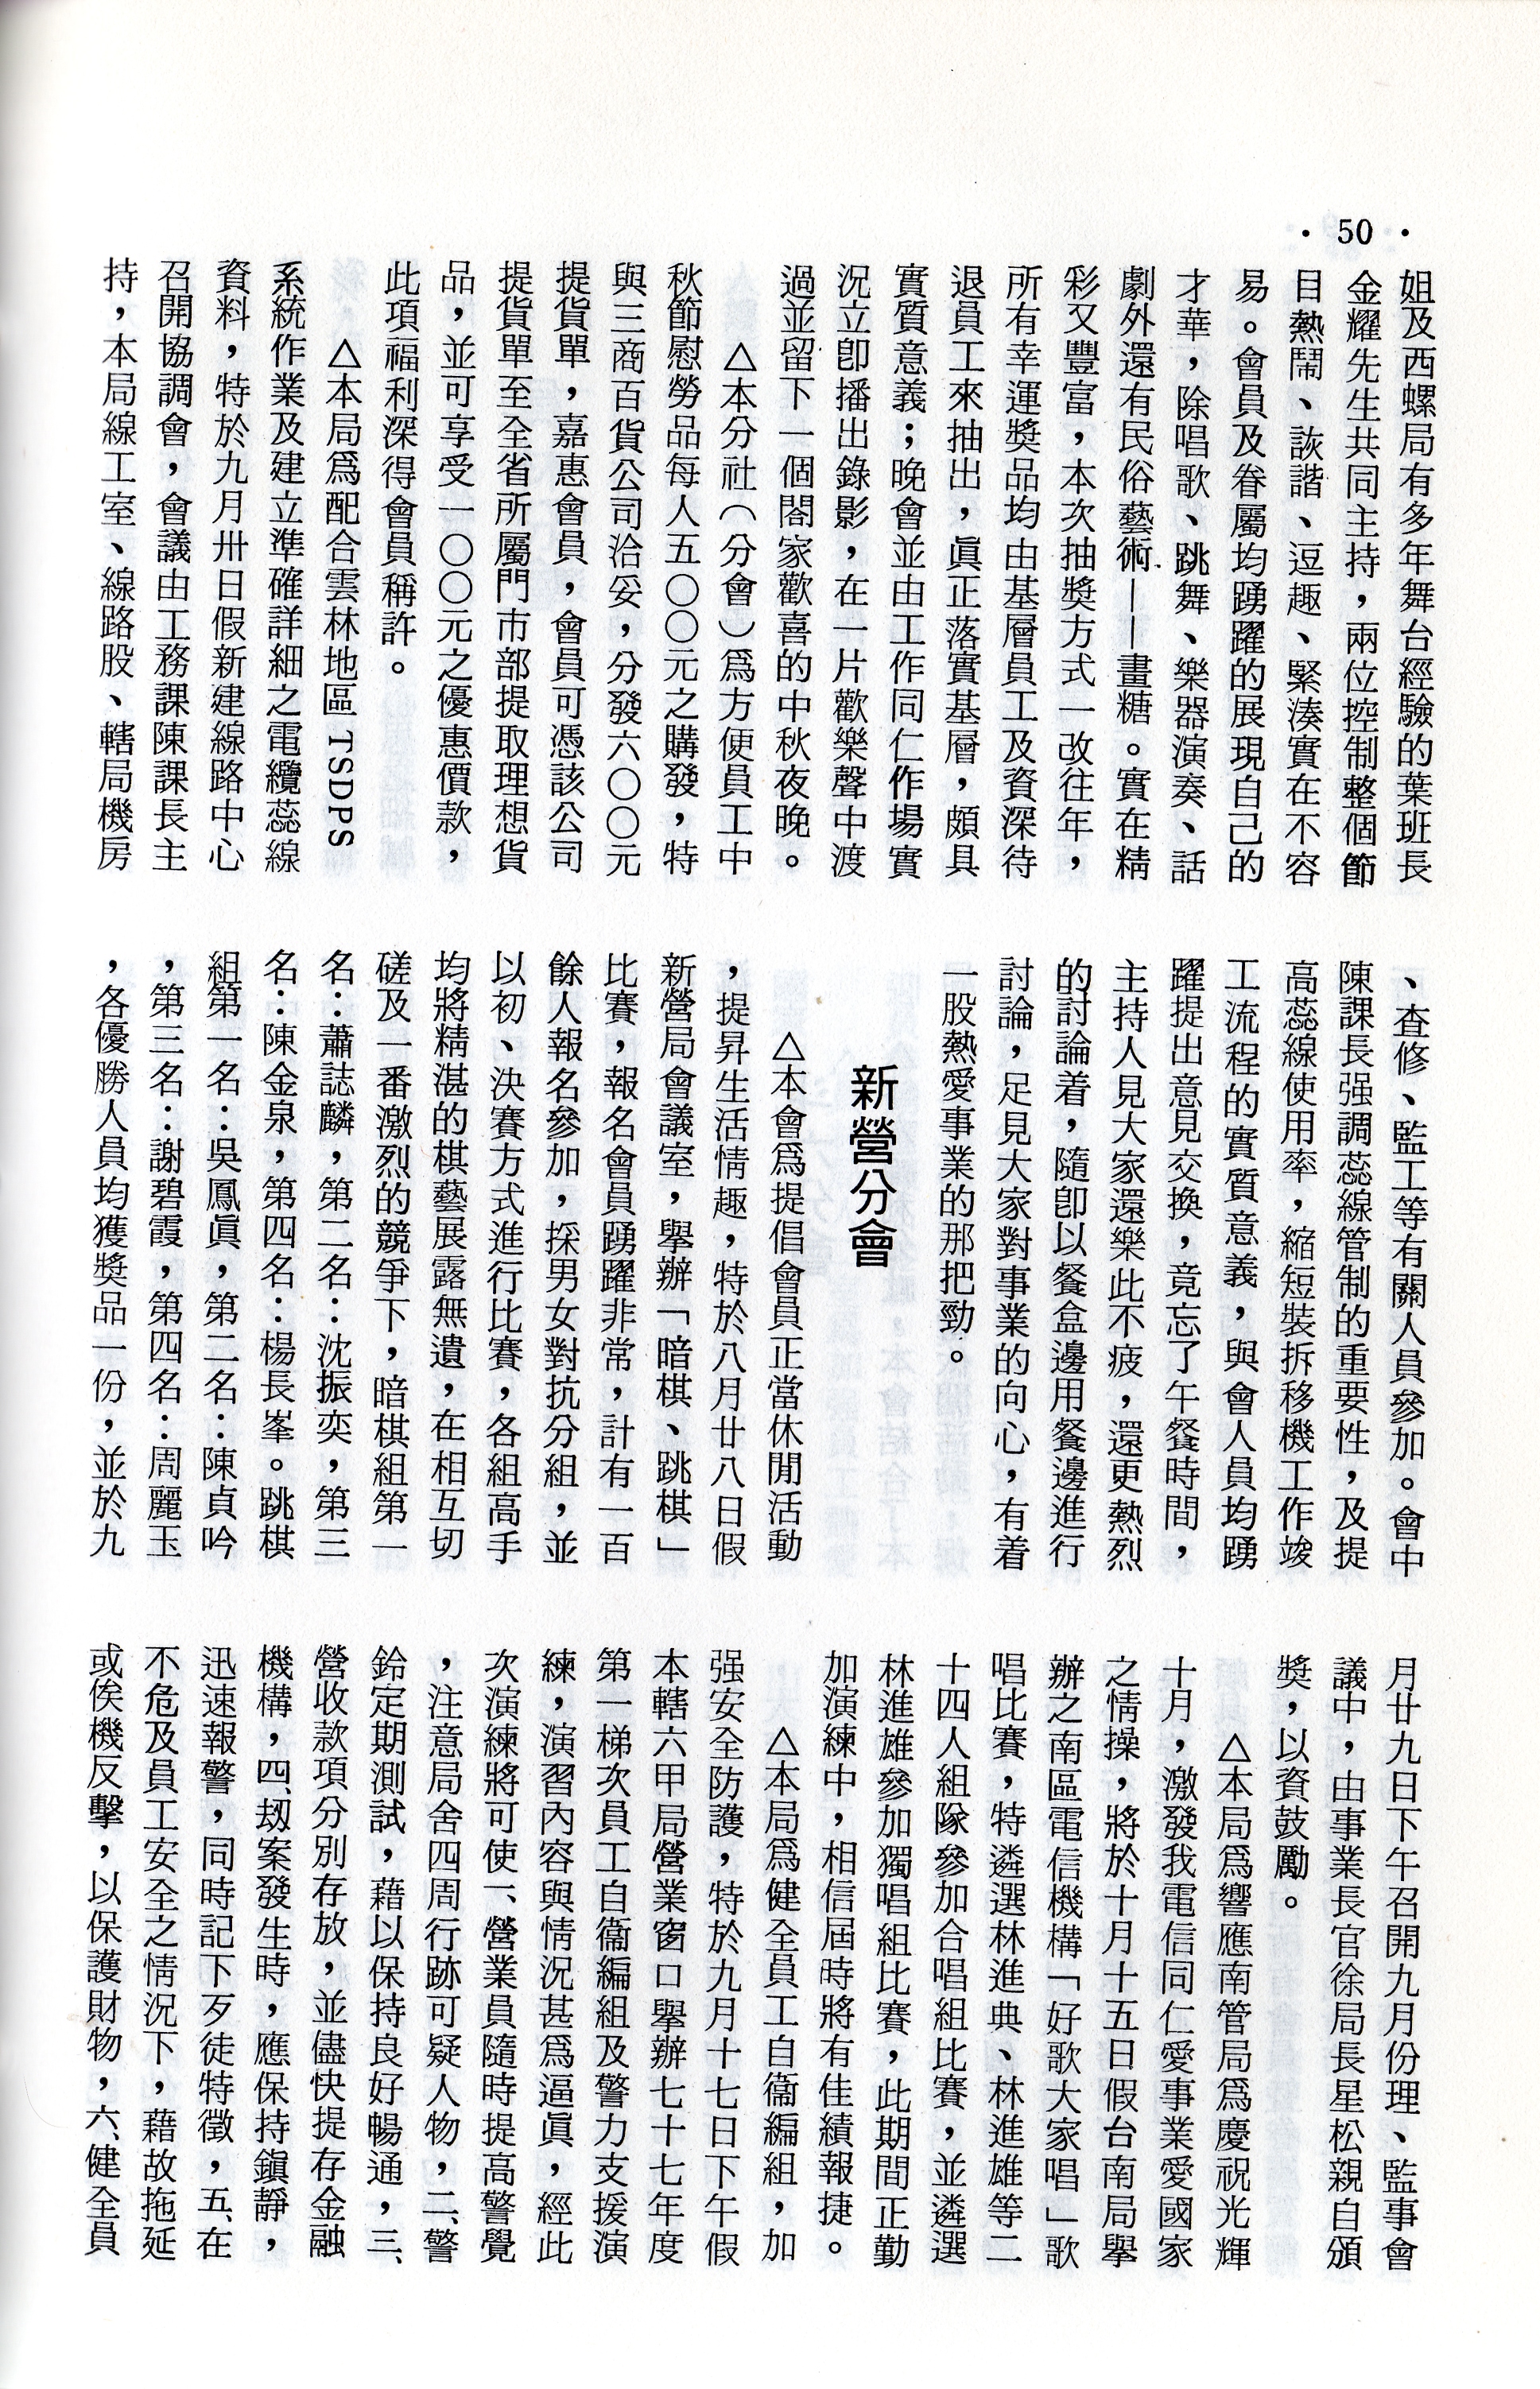 ·50·
姐及西螺局有多年舞台經驗的葉班長
金耀先生共同主持，兩位控制整個節
目熱鬧、詼諧、逗趣、緊湊實在不容
易。會員及眷屬均踴躍的展現自己的
才華，除唱歌、跳舞、樂器演奏、話
劇外還有民俗藝術——畫糖。實在精
彩又豐富，本次抽獎方式一改往年，
所有幸運獎品均由基層員工及資深待
退員工來抽出，眞正落實基層，頗具
實質意義；晚會並由工作同仁作場實
況立卽播出錄影，在一片歡樂聲中渡
過並留下一個閤家歡喜的中秋夜晚。
△本分社（分會）爲方便員工中
秋節慰勞品每人五〇〇元之購發，特
與三商百貨公司洽妥，分發六〇〇元
提貨單，嘉惠會員，會員可憑該公司
提貨單至全省所屬門市部提取理想貨
品，並可享受一〇〇元之優惠價款，
此項福利深得會員稱許。
△本局爲配合雲林地區TSDPS
系統作業及建立準確詳細之電纜蕊線
資料，特於九月卅日假新建線路中心
召開協調會，會議由工務課陳課長主
持，本局線工室、線路股、轄局機房
、查修、監工等有關人員參加。會中
陳課長强調蕊線管制的重要性，及提
高蕊線使用率，縮短裝拆移機工作竣
工流程的實質意義，與會人員均踴
躍提出意見交換，竟忘了午餐時間，
主持人見大家還樂此不疲，還更熱烈
的討論着，隨卽以餐盒邊用餐邊進行
討論，足見大家對事業的向心，有着
一股熱愛事業的那把勁。
新營分會
△本會爲提倡會員正當休閒活動
，提昇生活情趣，特於八月廿八日假
新營局會議室，舉辦「暗棋、跳棋」
比賽，報名會員踴躍非常，計有一百
餘人報名參加，採男女對抗分組，並
以初、決賽方式進行比賽，各組高手
均將精湛的棋藝展露無遺，在相互切
磋及一番激烈的競爭下，暗棋組第一
名：蕭誌麟，第二名：沈振奕，第三
名：陳金泉，第四名：楊長峯。跳棋
組第一名：吳鳳眞，第二名：陳貞吟
，第三名：謝碧霞，第四名：周麗玉
，各優勝人員均獲獎品一份，並於九
月廿九日下午召開九月份理、監事會
議中，由事業長官徐局長星松親自頒
獎，以資鼓勵。
△本局爲響應南管局爲慶祝光輝
十月，激發我電信同仁愛事業愛國家
之情操，將於十月十五日假台南局舉
辦之南區電信機構「好歌大家唱」歌
唱比賽，特遴選林進典、林進雄等二
十四人組隊參加合唱組比賽，並遴選
林進雄參加獨唱組比賽，此期間正勤
加演練中，相信屆時將有佳績報捷。
△本局爲健全員工自衞編組，加
强安全防護，特於九月十七日下午假
本轄六甲局營業窗口舉辦七十七年度
第一梯次員工自衞編組及警力支援演
練，演習內容與情況甚爲逼眞，經此
次演練將可使一、營業員隨時提高警覺
，注意局舍四周行跡可疑人物，二、警
鈴定期測試，藉以保持良好暢通，三、
營收款項分別存放，並儘快提存金融
機構，四、刼案發生時，應保持鎭靜，
迅速報警，同時記下歹徒特徵，五、在
不危及員工安全之情況下，藉故拖延
或俟機反擊，以保護財物，六、健全員